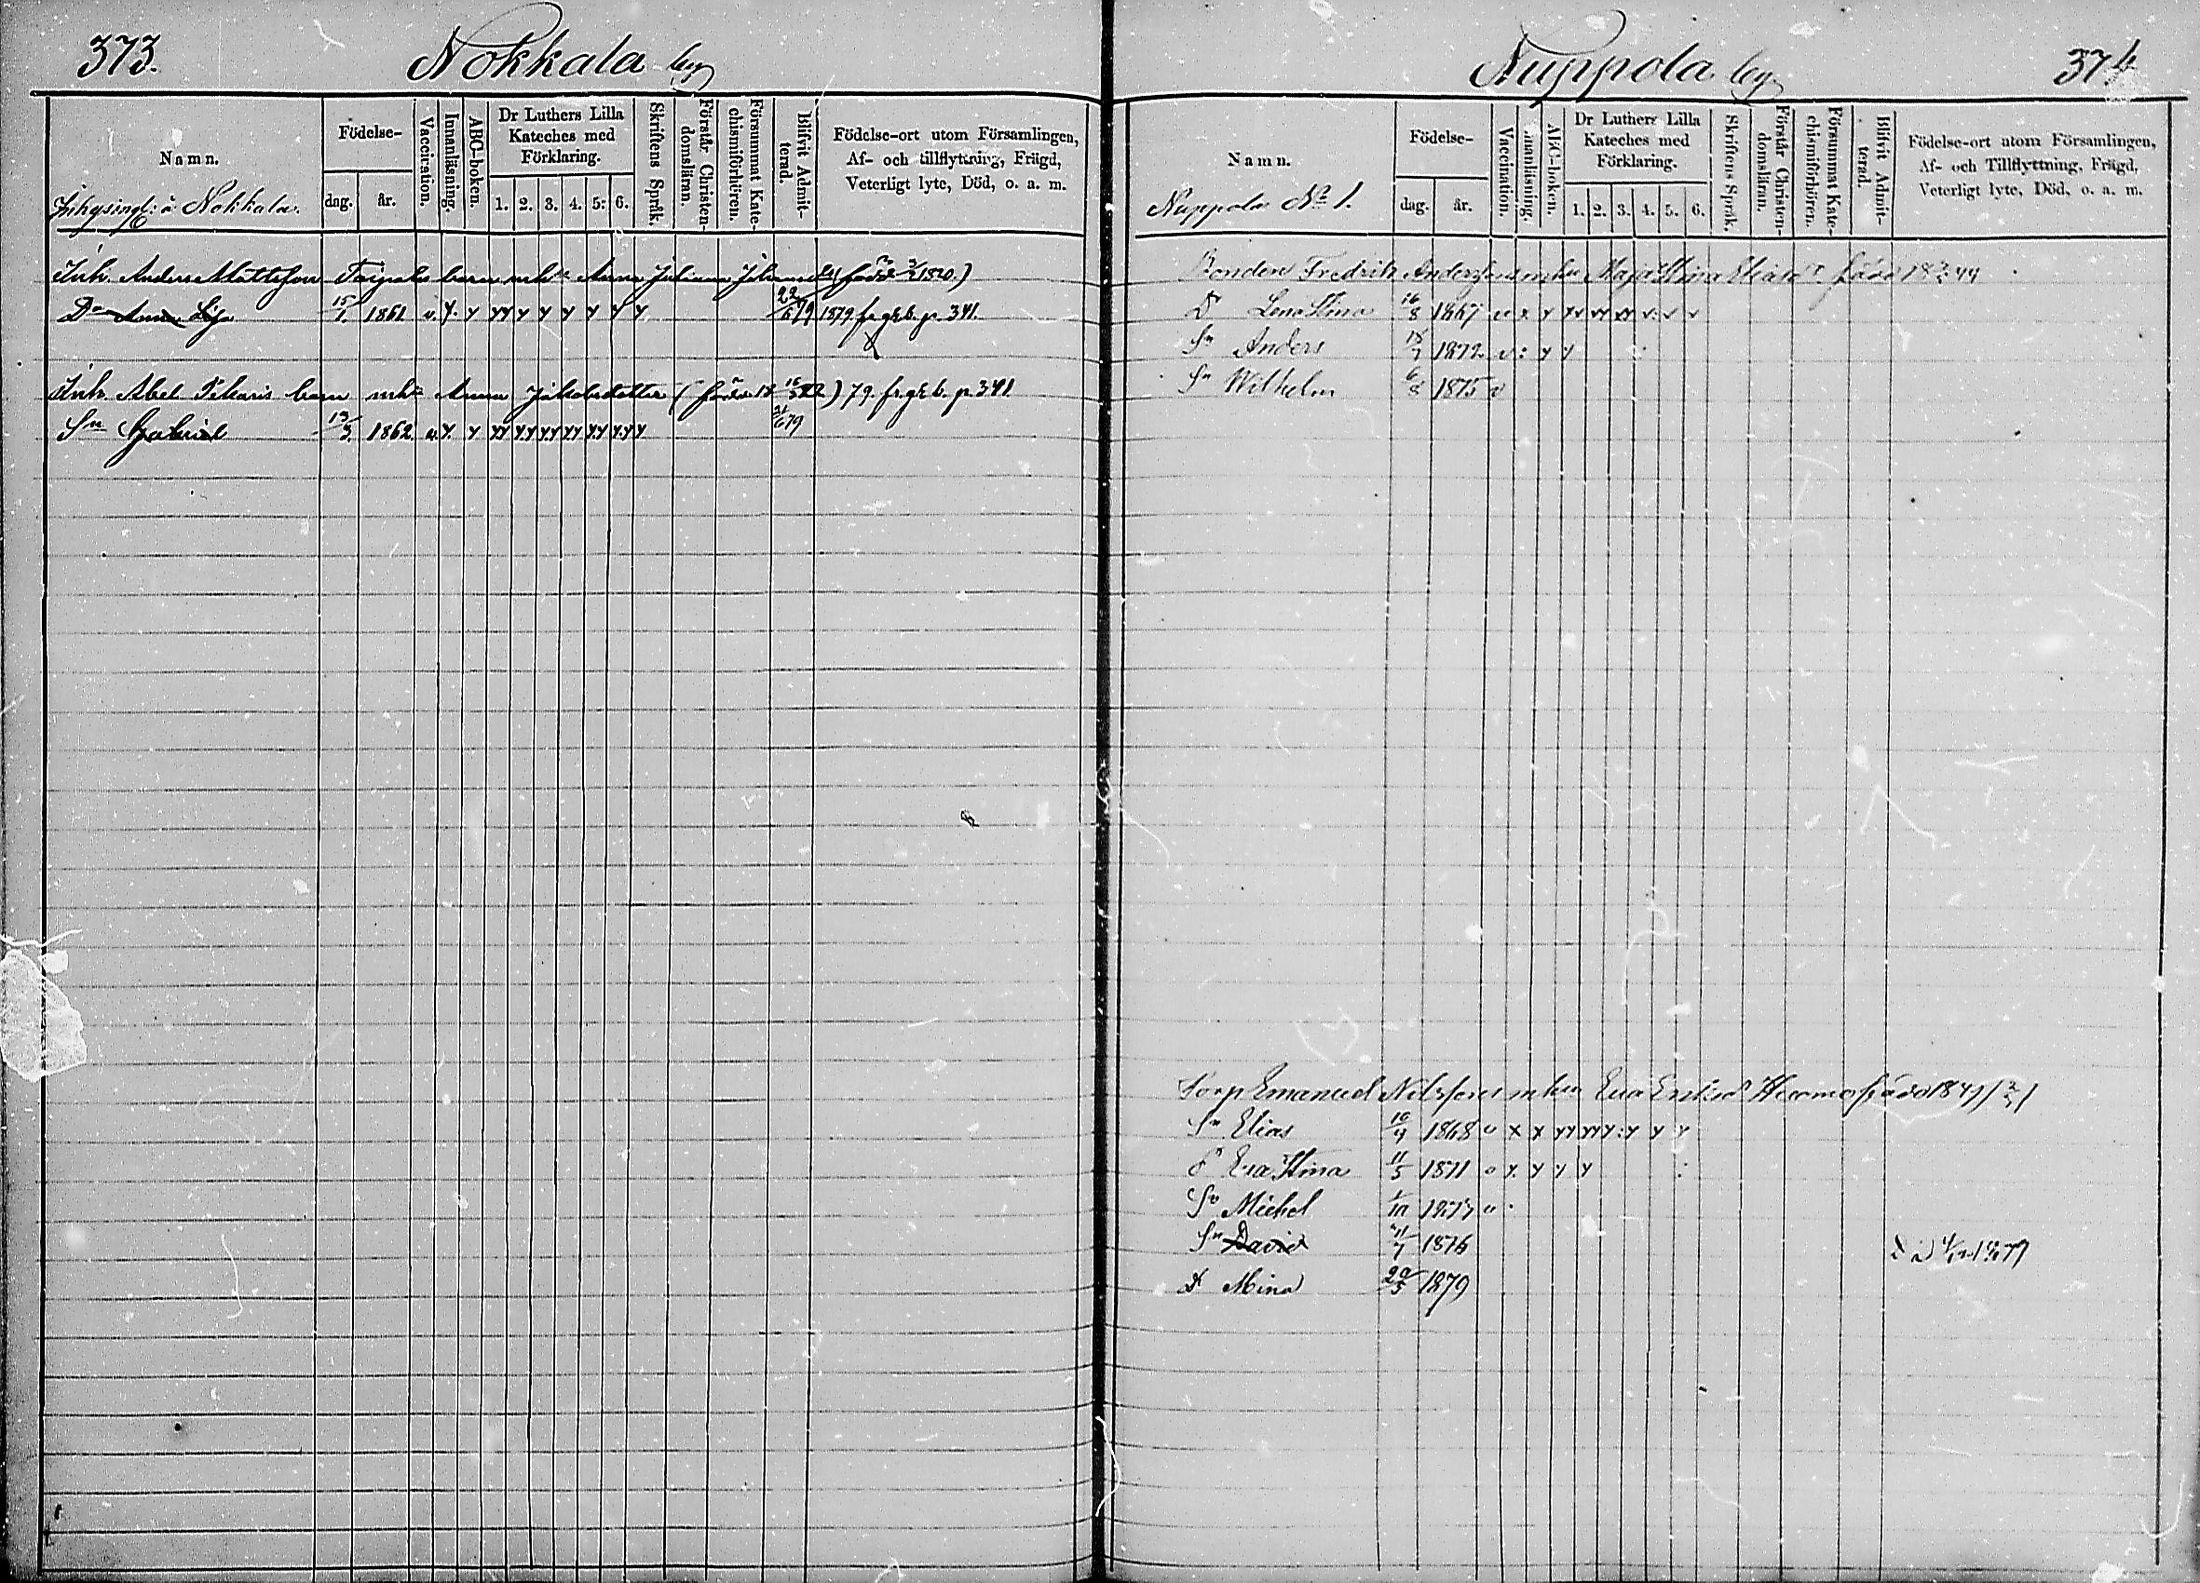 373.
Nokkala by
Namn.
Födelse-
dag. år.
Vaccination.
Innanläsning.
ABC-boken.
Dr Luthers Lilla Kateches med Förklaring.
1. 2. 3. 4. 5: 6.
Skriftens Språk.
Förstår Christendomsläran.
Försummat Katechismiförhören.
Blifvit Admitterad.
Födelse-ort utom Församlingen,
Af- och tillflyttning, Frägd,
Veterligt lyte, Död, o. a. m.
Inhysingl: å Nokkala.
Inh. Anders Mattsson barn mh Anna (född 1820.)
Dr Anna Lisa 15/1. 1861 v. y. y yy y y y y y y 22/6 79 1879 fr gr b. p. 341.
Inh. Abel barn mhu Anna Jakobsdotter (född 18 22) 79. fr gr b. p 341
Sn Gabriel 13/3. 1862 v. y. y yy yy yy yy yy yy y 21/6 79
Nuppola by
374
Namn.
Födelse-
dag. år.
Vaccination.
Innanläsning.
ABC-boken.
Dr Luthers Lilla Kateches med Förklaring.
1. 2. 3. 4. 5. 6.
Skriftens Språk.
Förstår Christendomsläran.
Försummat Katechismiförhören.
Blifvit Admitterad.
Födelse-ort utom Församlingen,
Af- och Tillflyttning, Frägd,
Veterligt lyte, Död, o. a. m.
Nuppola No 1.
Bonden Fredrik Andersson mhu Maja Stina född 44
D Lena Stina 16/8 1867
Sn Anders 18/7 1872
Sn Wilhelm 6/8 1875 v
Torp Emanuel Nilsson mhu Eva född 1847
Sn Elias 10/4 1868 v x x yy yy y: y y y
D Eva Stina 11/5 1871 v y. y y y
Sn Michel 1/10 1873 v
Sn David 1876
D Mina 29/5 1879